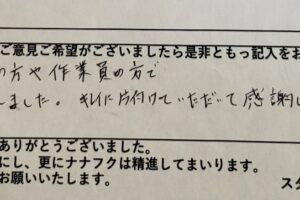 ご意見ご希望がございましたら是非ともっ記入をお
の方や作業員の方で
ました。キレイに片付けていただいて感謝し
ありがとうございました。
にし、更にナナフクは精進してまいります。
お願いいたします。
スタ